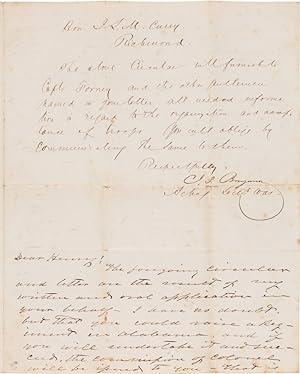 Hon J L M Curry
Richmond.
The above Circular will furnish to
Capt Forney and the other gentlemen
named in your letter all needed informa
tion in regard to the organization and accept
ance of troops You will oblige by
communicating the same to them.
Respectfully,
J P Benjamin
Actg Secty War
Dear Henry!
The foregoing circular
and letter are the result of my
written and oral application in
your behalf. I have no doubt,
but that you could raise a Reg
iment in Alabama. If
you will undertake it and suc
ceed, the commission of Colonel
will be issued to you. That is